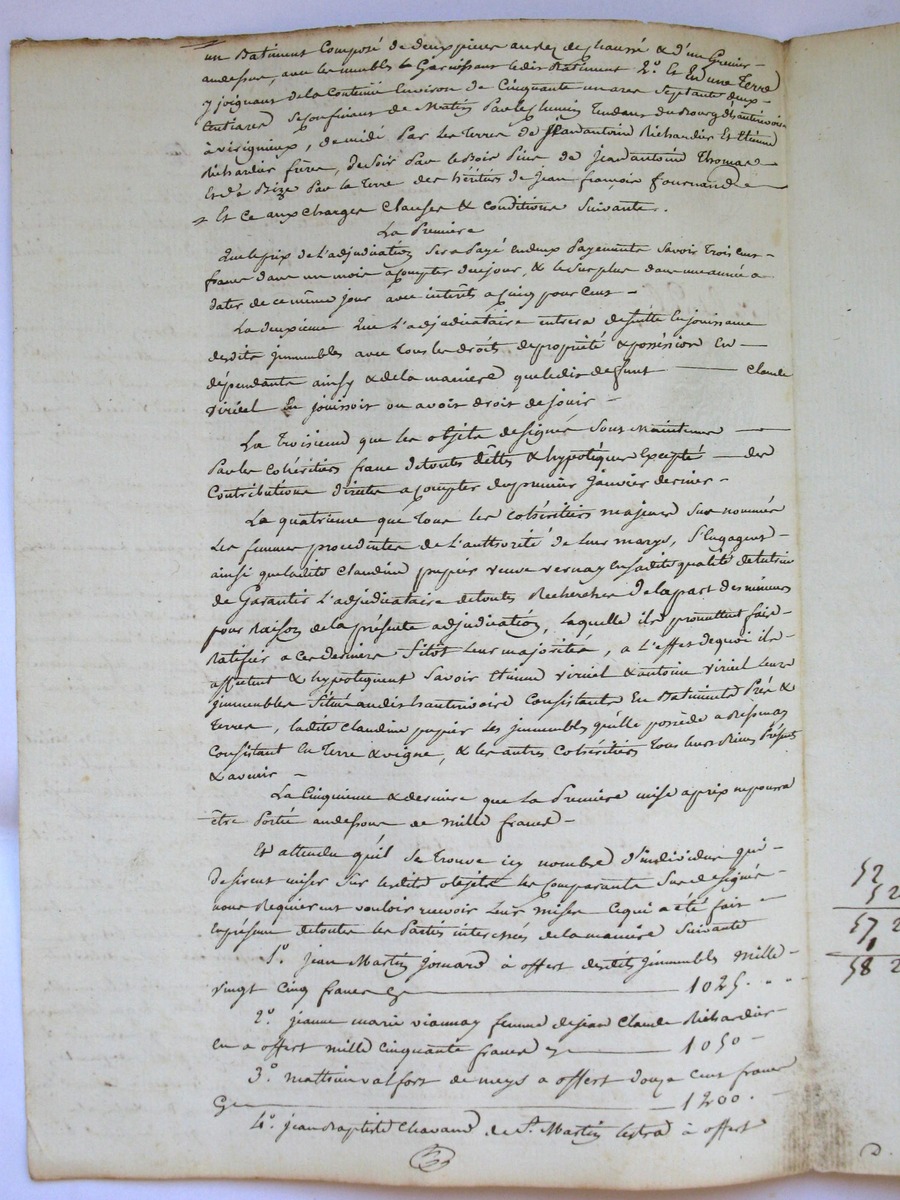 un Batiment Composé de deux pieces au rez de chaussé & d'un Grenier -
audessus, avec les meubles Garnissant ledit Batiment 2.o Et En une Terre
y joignant de la Contenue Environ de Cinquante un ares Septante deux -
Centiares se Confinant de Matin Par le Chemin Tendant du Bourg d'hauterivoire
à virigneux, de midi Par les Terres de Jean antoine Richardier Et Etienne
Richardier frères, de soir Par le Bois Pins de Jean antoine Thomas -
Et de Bize Par la Terre des héritiers de Jean françois fournand
Et Ce aux Charges Clauses & Conditions Suivantes.
La Premiere
Que le prix de L'adjudication Sera Payé en deux Payements Savoir Trois Cent -
francs dans un mois a Compter de ce jour, & le Surplus dans une année a
dater de ce même jour avec interêts a Cinq pour Cent -
La deuxieme Que L'adjudicataire entrera de suitte En jouissance
desdits jmmeubles avec tous les droits de propriété & posséssion En -
dépendants ainsy & de la maniere que ledit defunt Claude
viricel En jouissoit ou avoit droit de jouir -
La Troisieme que les objets designés Sont Maintenus
Par les Cohéritiers francs de toutes dêttes & hypotèques Excepté - des
Contributions directes a Compter du premier janvier dernier -
La quatrieme que Tous les Cohéritiers majeurs Sus nommés
Les femmes procedentes de L'authorité de leurs marys, S'Engagent -
ainsi que ladite Claudine papier veuve vernay En sadite qualité de tutrice
de Garantir L'adjudicataire de toutes Recherches De la part des mineurs
pour Raison de la présente adjudication, laquelle ils promettent faire
Ratifier a Ces derniers Sitôt leur majoritée, a L'effet de quoi ils -
affectent & hypotèquent Savoir Etienne viricel & antoine viricel leurs
jmmeubles Situés audit hauterivoire Consistants En Batiments Prés &
Terres, ladite Claudine papier les jmmeubles qu'elle possède a Bessenay
Consistant En Terre & vigne, & les autres Cohéritiers Tous leurs Biens Présents
& avenir -
La Cinquieme & derniere que La Premiere mise a prix ne pourra
être Portée audessous de Mille francs -
Et attendu qu'il Se trouve icy nombre d'individus qui -
Desirent miser Sur lesdits objets les Comparants Sus designés -
nous Requierent vouloir recevoir Leurs mises Ce qui a été fait -
En présence de toutes les Parties interessées de la maniere Suivante
1.o Jean Martin Jomard à offert desdits jmmeubles Mille -
vingt Cinq francs Cy 1025.
2.o jeanne marie viannay femme de jean Claude Richardier -
En a offert mille Cinquante francs Cy 1050 -
3.o mathieu valfort de meys a offert douze Cent francs
Cy 1200.
4.o jean Baptiste Chavand de St. Martin Lestra à offert
52
52
57 2
1
58 2